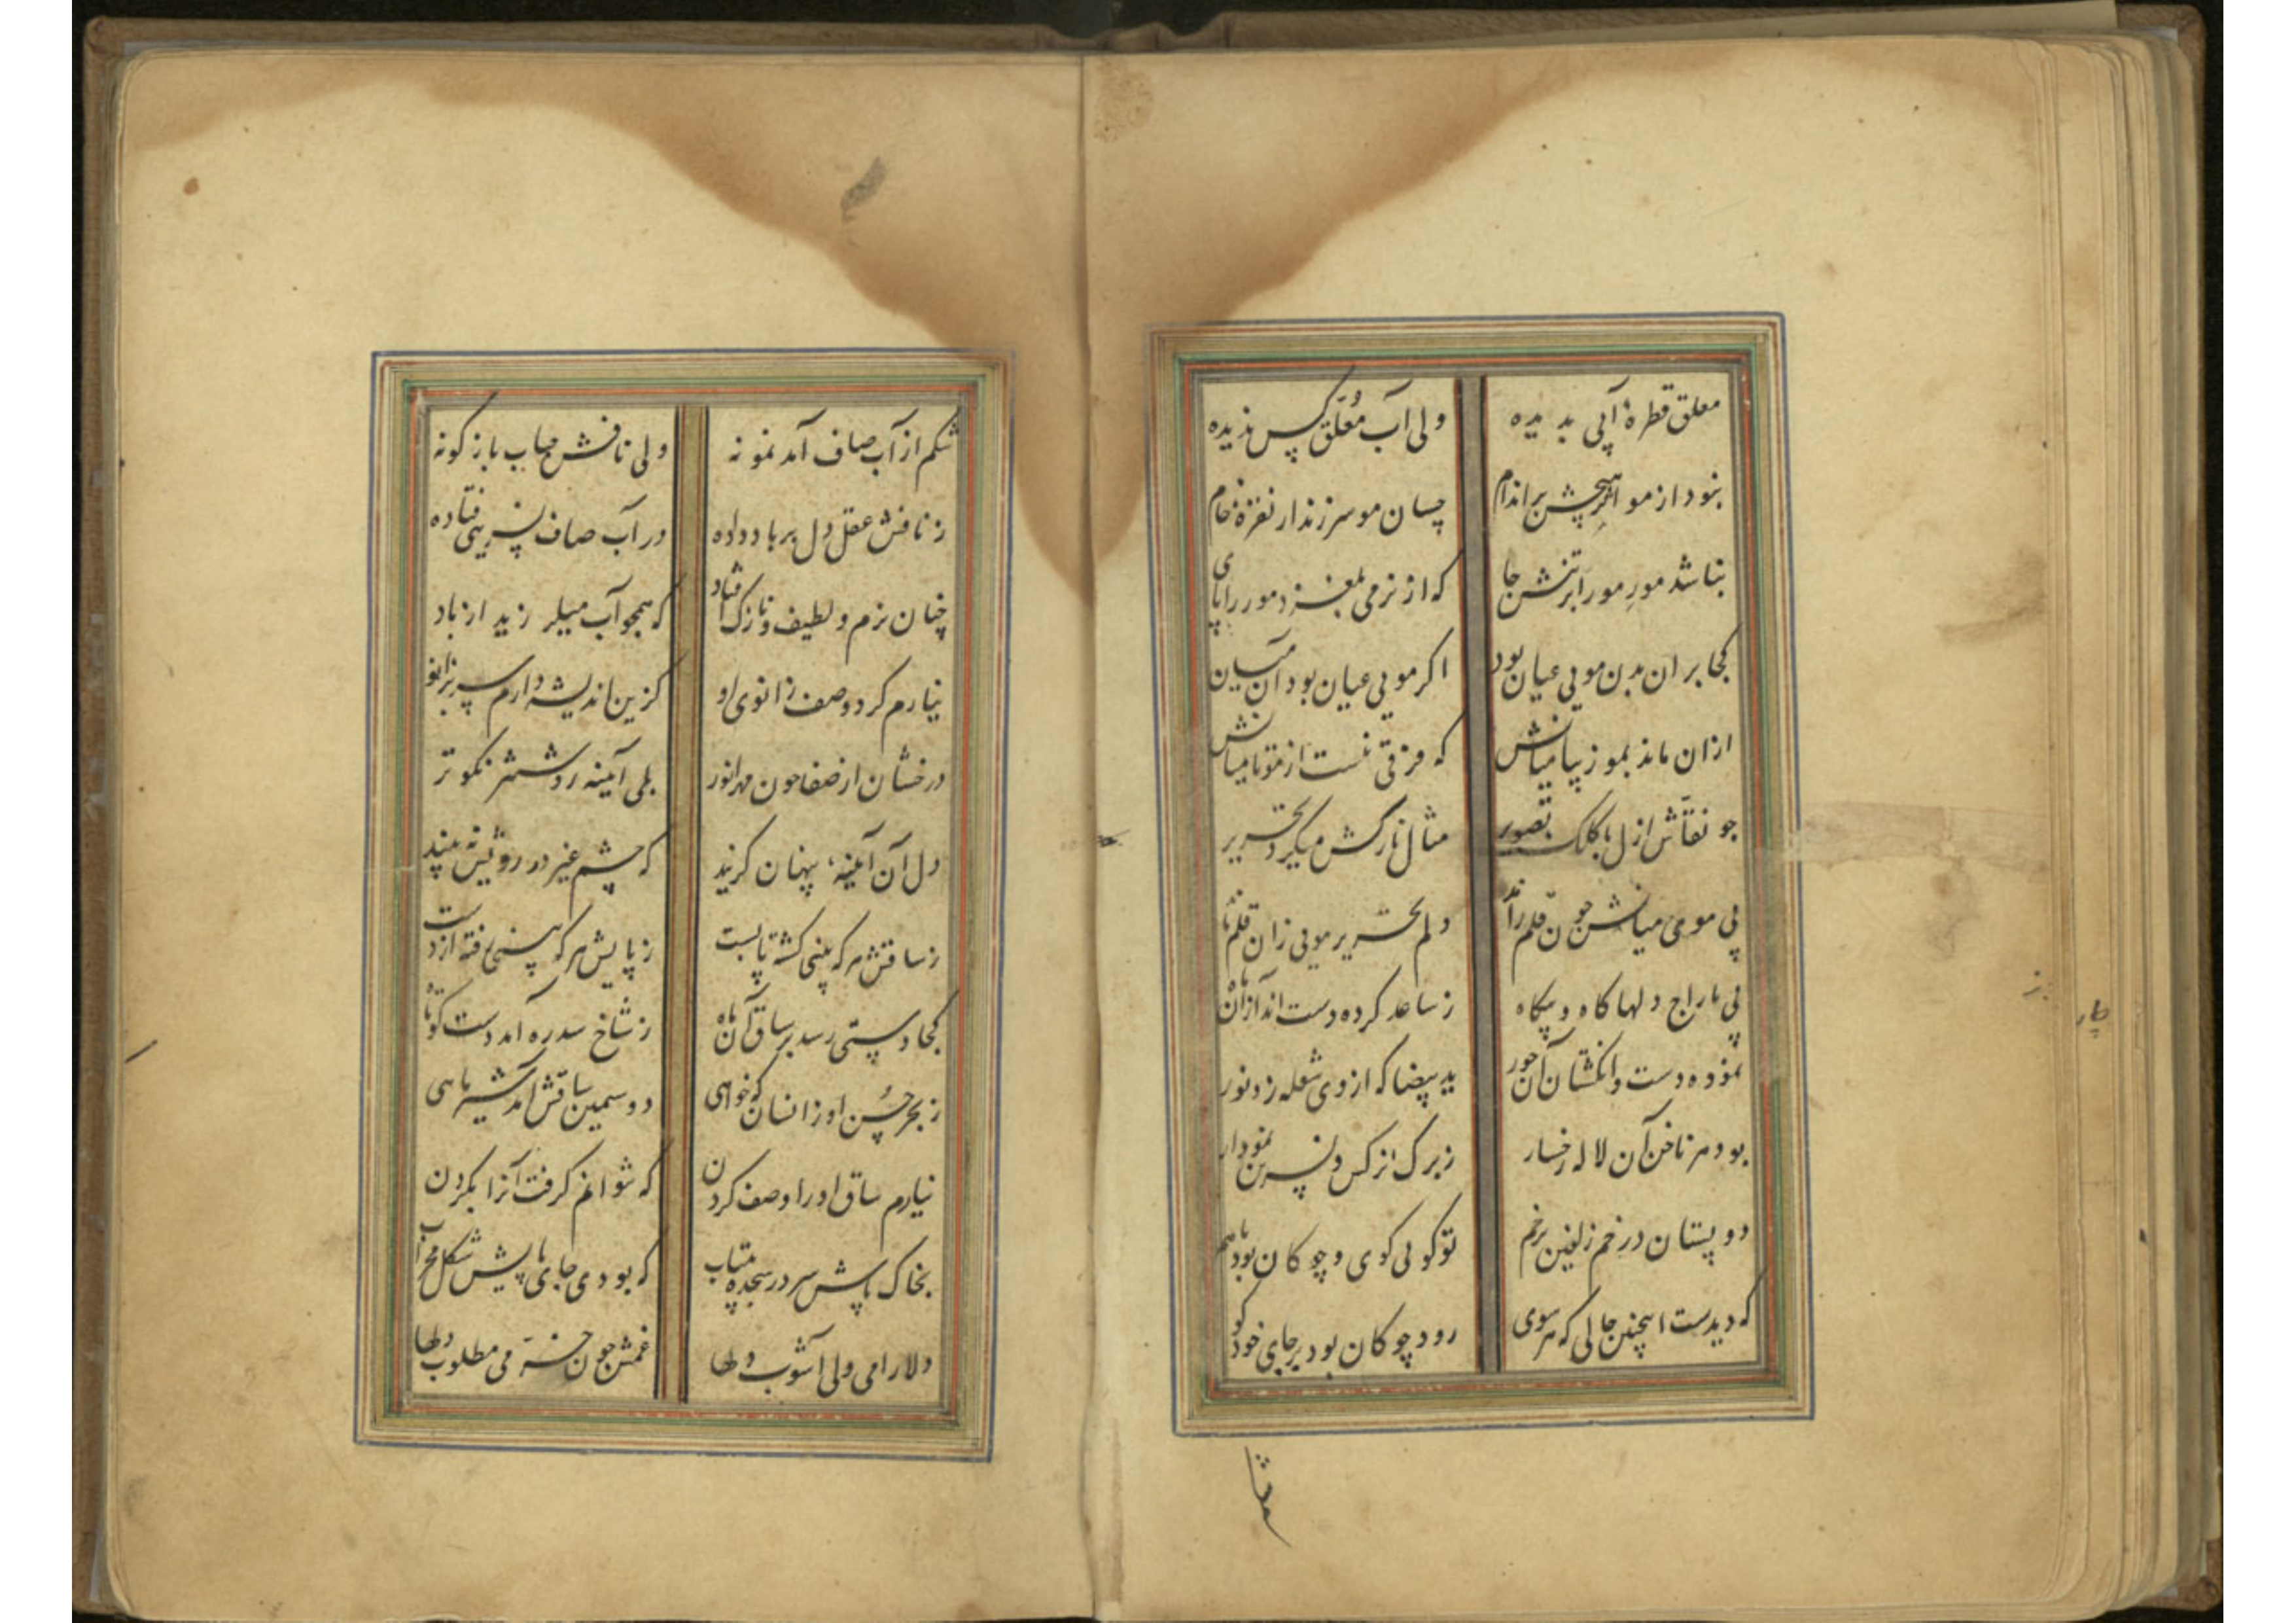 معلق قطرهٔ آبی بدیده ولی آب مُعلّق کس ندیده
نبود از مو اثر هیچش بر اندام چسان مو سر زند از نقرهٔ خام
نباشد مورِ مو را بر تنش جا که از نرمی بلغزد مور را پای
کجا بر ان بدن مویی عیان بود اگر مویی عیان بود آن میان
ازان ماند بمو زیبا میانش که فرقی نیست از مو تا میانش
جو نقّاش ازل با کلک تصویر مثال نارکش میکرد تحریر
پی موی میانش جون قلم راند دلم تحریر مویی زان قلم
پی تاراج دلها کاه و بیکاه ز ساعد کرده دست انداز آن ماه
نموده دست و انکشتان آن حور ید بیضا که از وی شعله زد نور
بود هر ناخن آن لاله رخسار ز برک نرکس و نسرین نمودار
دو پستان در خم زلفین پر خم تو کویی کوی و چوکان بود باهم
که دیدست اینچنین جالی که هر سوی رود چوکان بود بر جای خود کو
شکم از آب صاف آمد نمونه ولی نافش حباب بازکونه
ز نافش عقل و دل بر باد داده در آب صاف نسرینی فتاده
چنان نرم و لطیف و نازک افتاد که همچو آب میلرزید از باد
نیارم کرد وصف زانوی او کزین اندیشه دارم سر بزانو
درخشان از صفا جون مهر انور بلی آیینه روشنتر نکوتر
دل آن آیینه پنهان کزیند که چشم غیر در رویش نه بیند
ز ساقش هر که بینی کشته پابست ز پایش هر که بینی رفته از دست
کجا دستی رسد بر ساق آن ماه ز شاخ سدره آمد دست کوتاه
ز بحر حُسن او زانسان که خواهی دو سیمین ساقش آمد شیر ماهی
نیارم ساق او را وصف کردن که نتوانم کرفت آنرا بکردن
بخاک پاش سر در سجده بیتاب که بودی جای پایش شکل محراب
دلارامی ولی آشوب دلها غمش جون خرّمی مطلوب دلها